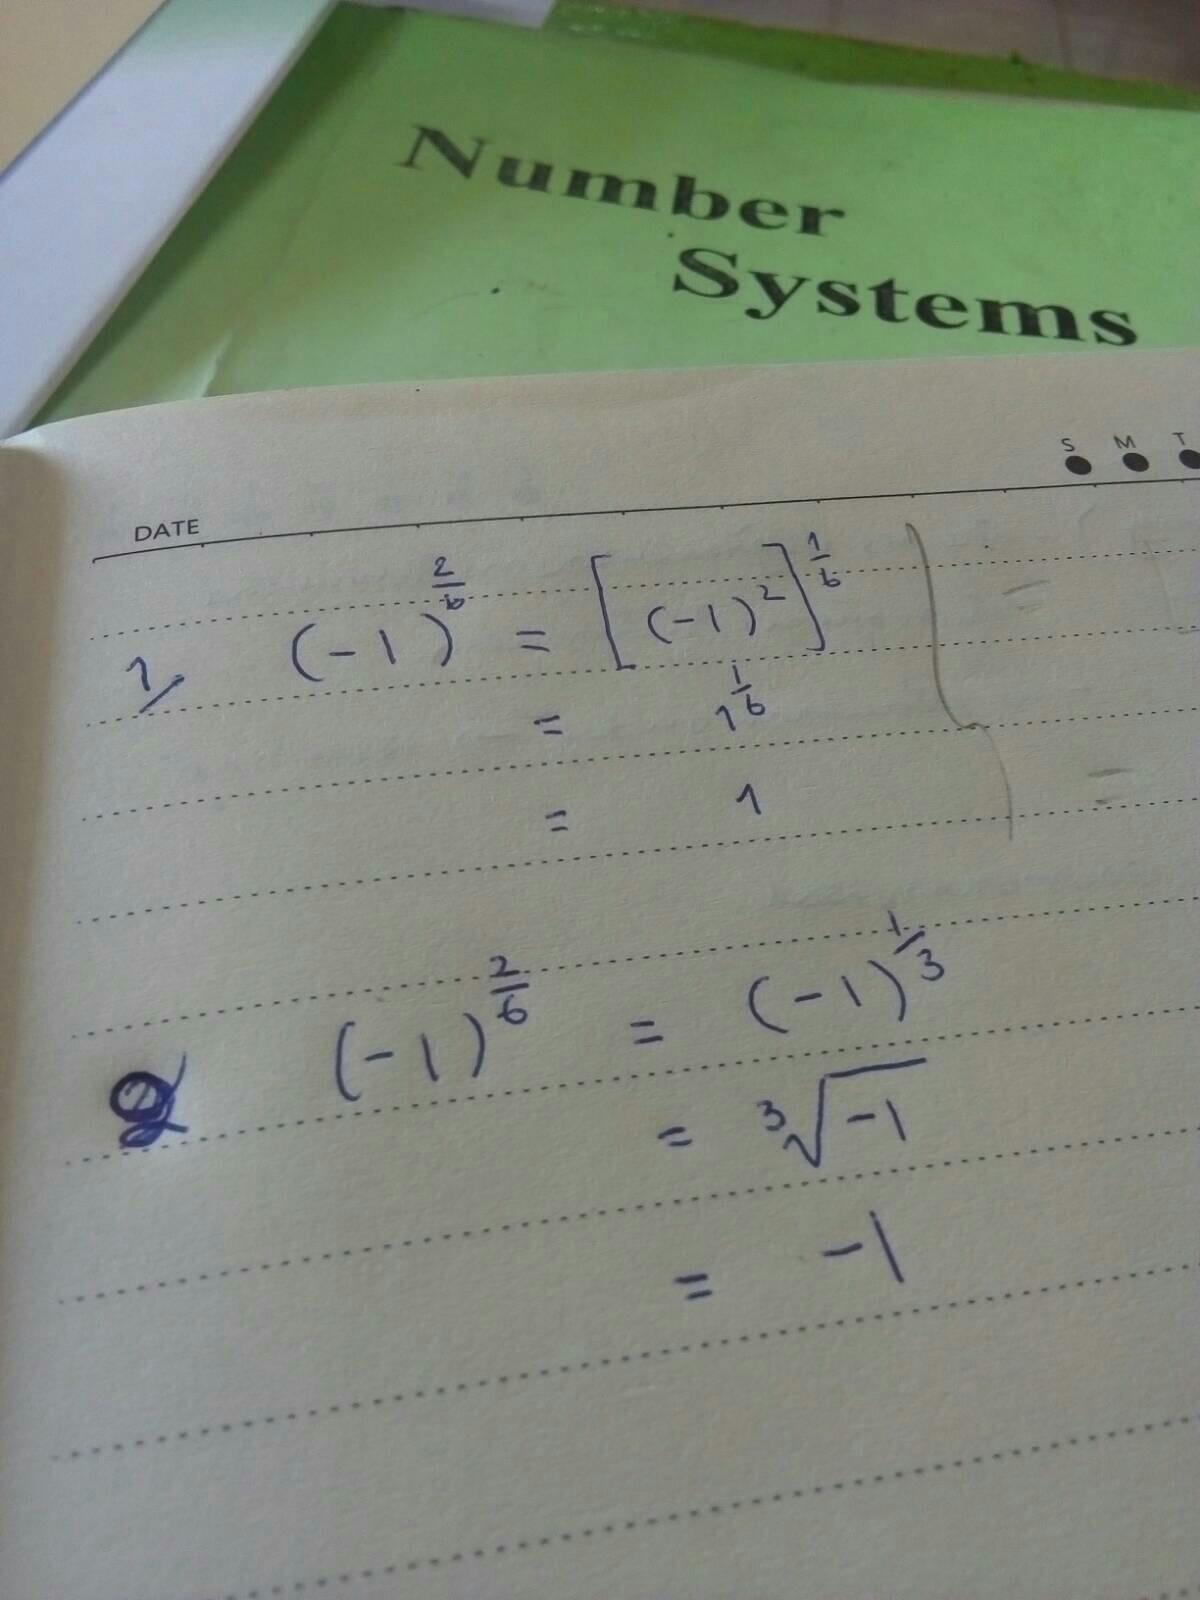 Number
Systems
S M T
DATE
1/ (-1)^{2/6} = [(-1)^2]^{1/6}
= 1^{1/6}
= 1
2/ (-1)^{2/6} = (-1)^{1/3}
= ∛-1
= -1